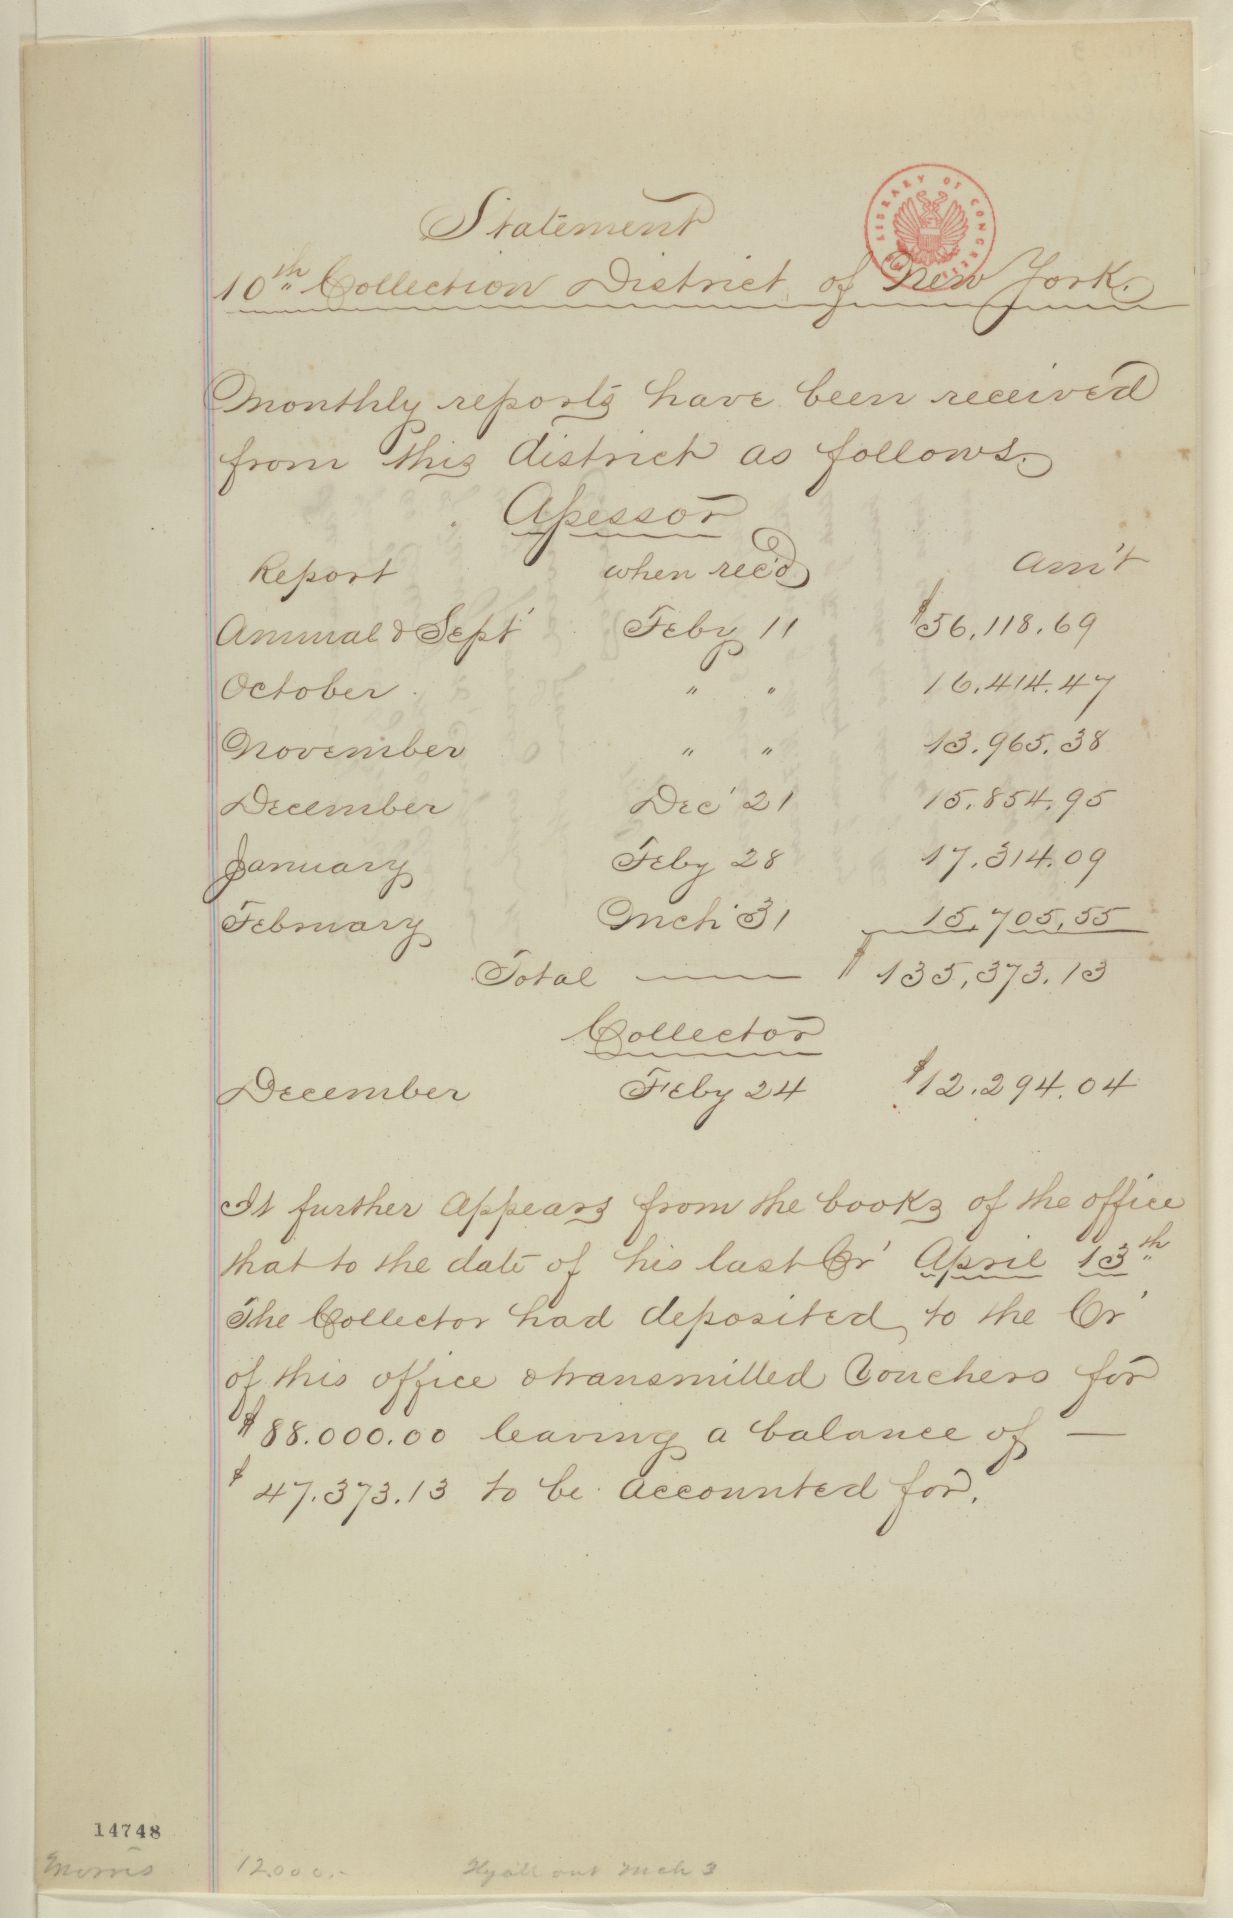 LIBRARY OF CONGRESS
Statement
10th Collection District of New York.
Monthly reports have been received
from this district as follows.
Assessor
Report when rec'd Am't
Annual & Sept' Feby 11 $56,118.69
October " " 16.414.47
November " " 13.965.38
December Dec' 21 15.854.95
January Feby 28 17.314.09
February Mch' 31 15,705,55
Total — $135,373.13
Collector
December Feby 24 $12.294.04
It further appears from the books of the office
that to the date of his last Cr' April 13th
The Collector had deposited, to the Cr'
of this office & transmitted Vouchers for
$88.000.00 leaving a balance of —
$47.373.13 to be accounted for.
14748
Morris 12.000.- out Mch 3